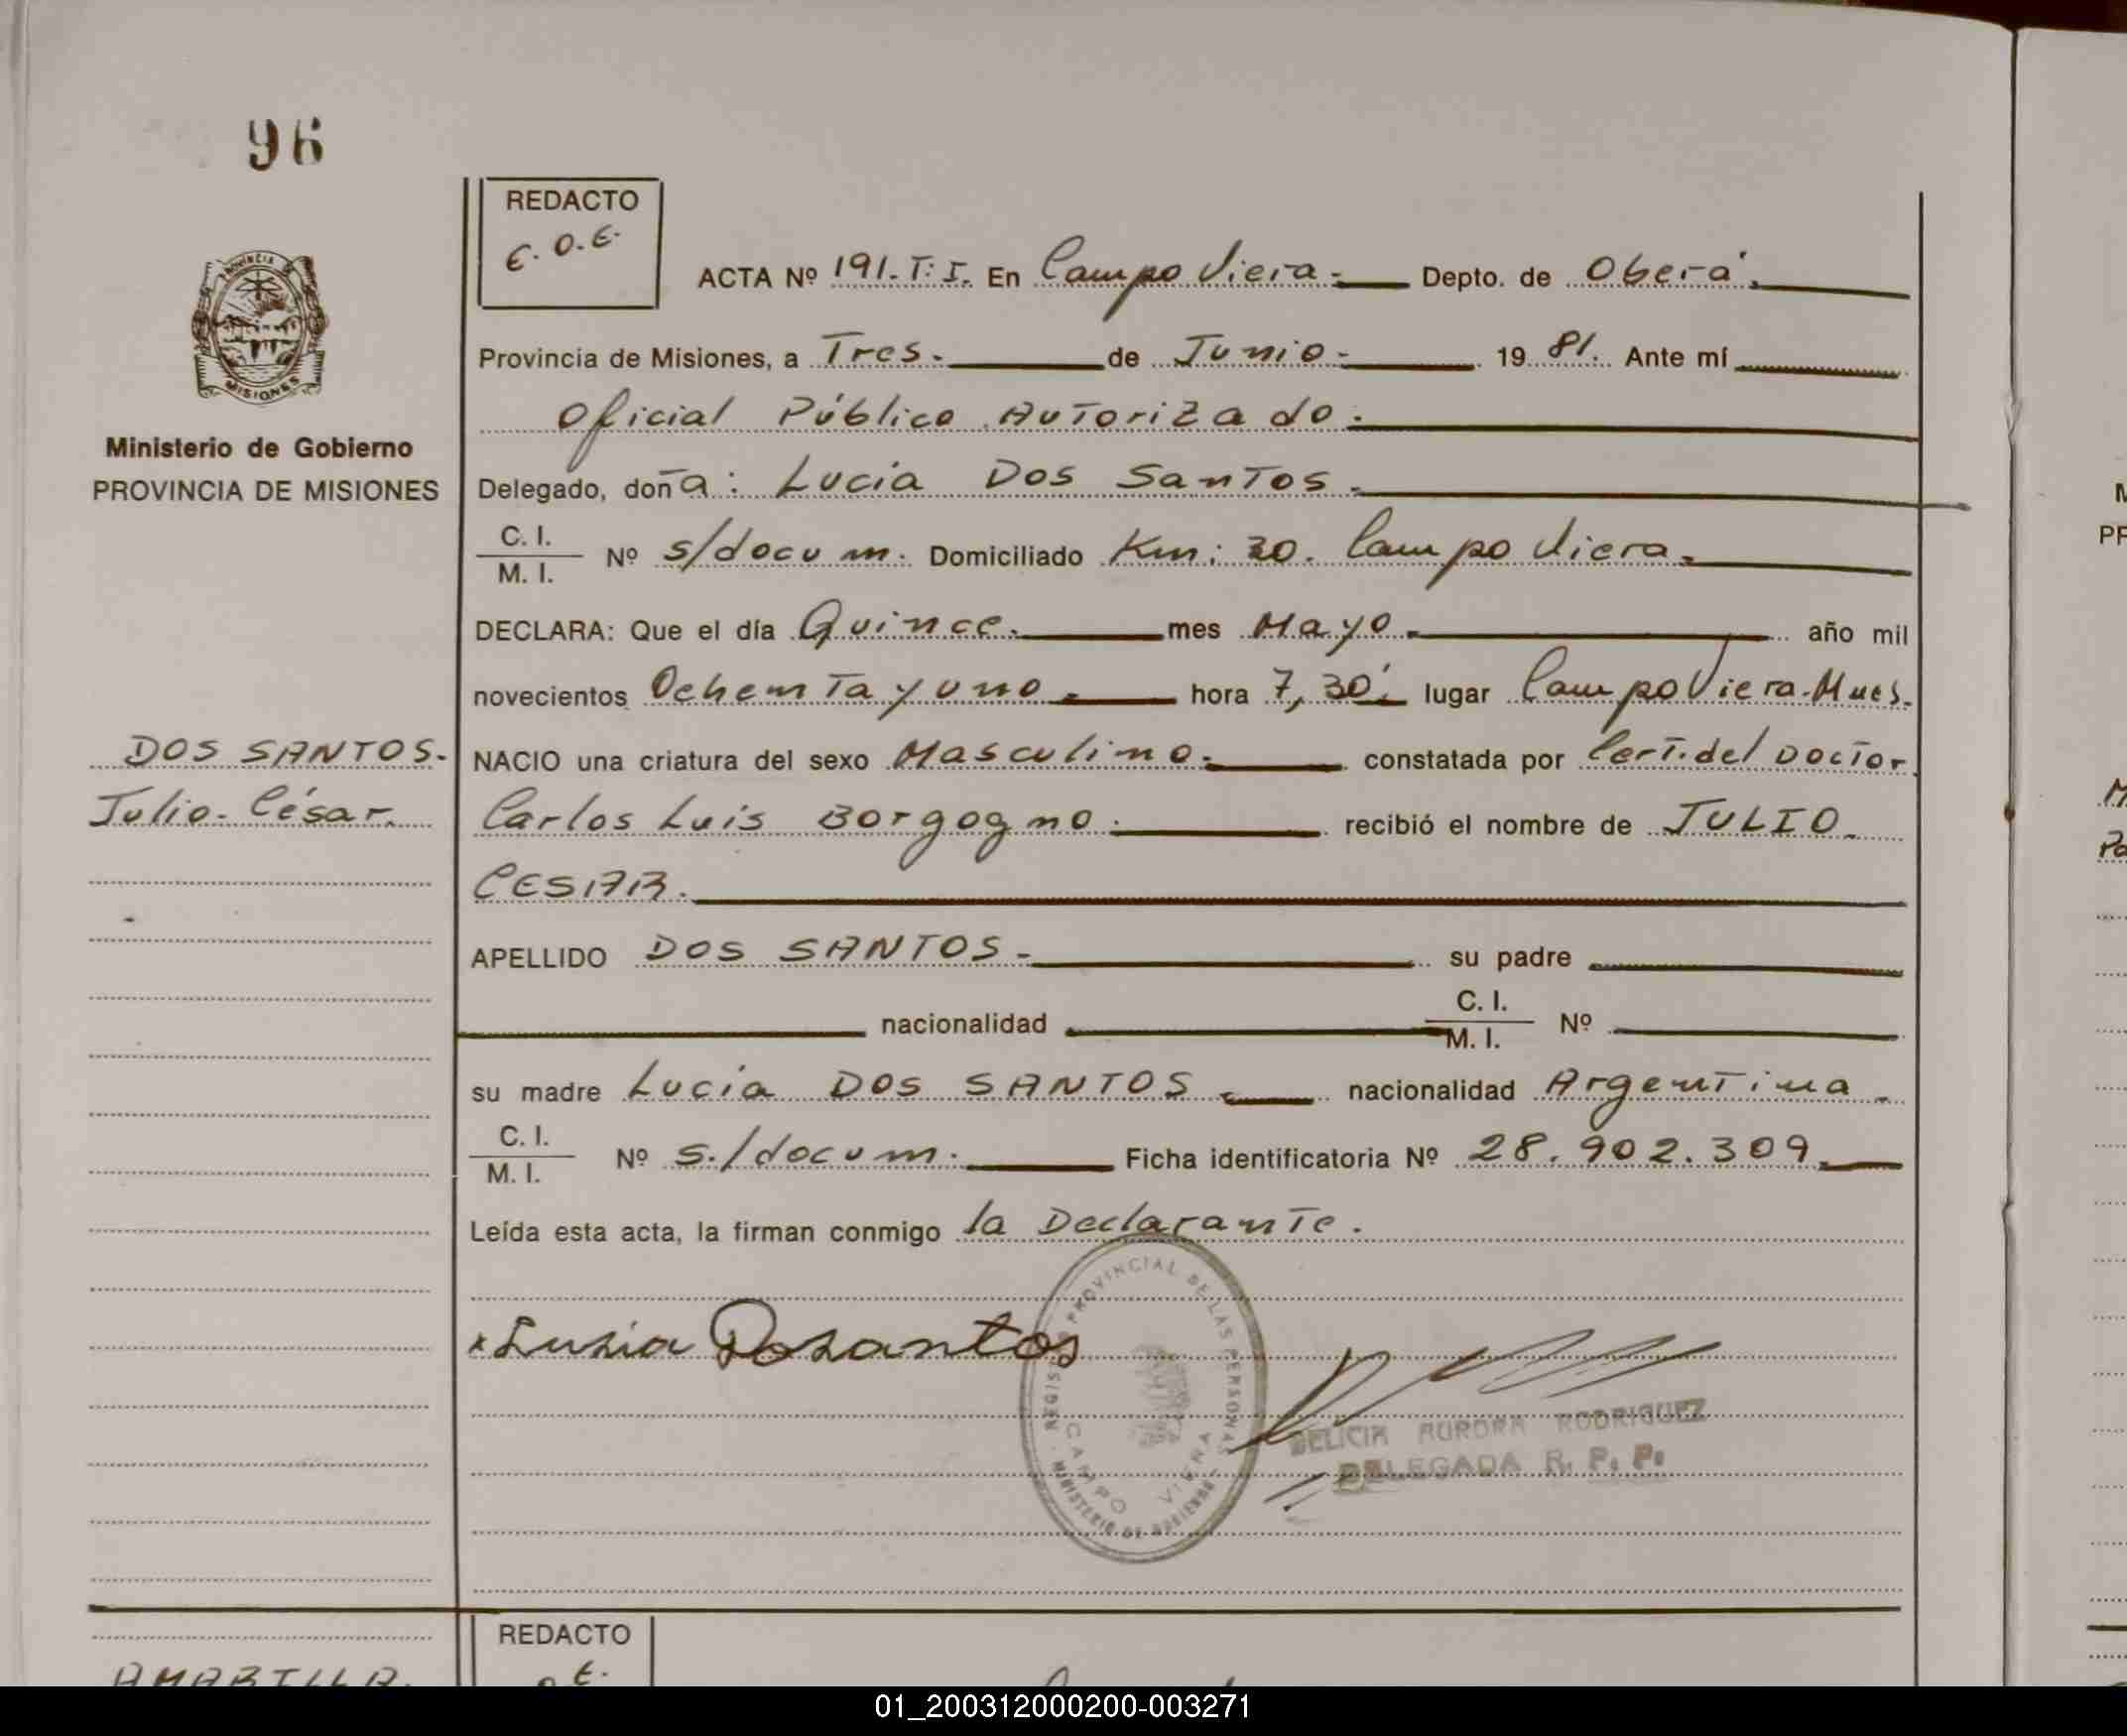 96
REDACTO
E. O. E.
ACTA Nº 191. T: I. En Campo Viera.- Depto. de Oberá.
PROVINCIA DE MISIONES
Provincia de Misiones, a Tres.- de Junio.- 19 81. Ante mí
Oficial Público Autorizado.
Ministerio de Gobierno
PROVINCIA DE MISIONES
Delegado, doña: Lucia Dos Santos.
C. I.
M. I. Nº s/docum. Domiciliado Km: 30. Campo Viera.
DECLARA: Que el día Quince. mes Mayo. año mil
novecientos Ochenta y uno. hora 7,30´. lugar Campo Viera. Mnes.
DOS SANTOS.
Julio César.
NACIO una criatura del sexo Masculino. constatada por Cert. del Doctor
Carlos Luis Borgogno. recibió el nombre de JULIO
CESAR.
APELLIDO DOS SANTOS. su padre
nacionalidad C. I.
M. I. Nº
su madre Lucia DOS SANTOS nacionalidad Argentina.
C. I.
M. I. Nº s./docum. Ficha identificatoria Nº 28.902.309.
Leída esta acta, la firman conmigo la Declarante.
x Lusia Dosantos
REGISTRO PROVINCIAL DE LAS PERSONAS
CAMPO VIERA
MINISTERIO DE GOBIERNO
DELICIA AURORA RODRIGUEZ
DELEGADA R. P. P.
REDACTO
01_200312000200-003271